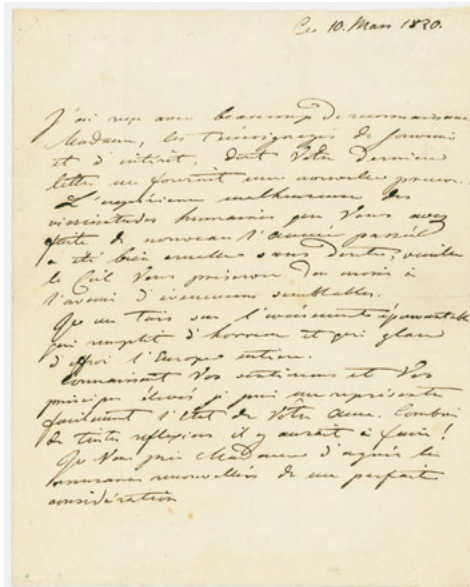 Ce 10. Mars 1820.
J'ai reçu avec beaucoup de reconnaissance
Madame, les témoignages de souvenir
et d'intérêt, dont Votre dernière
lettre me fournit une nouvelle preuve.
L'expérience malheureuse des
vicissitudes humaines que Vous avez
faite de nouveau l'année passée
a été bien cruelle sans doute, veuille
le Ciel Vous préserver du moins à
l'avenir d'évenemens semblables.
Je me tais sur l'évènement épouvantable
qui remplit d'horreur et qui glace
d'effroi l'Europe entière.
Connaissant Vos sentimens et Vos
principes élevés je puis me représenter
facilement l'état de Votre âme. Combien
de tristes reflexions il y aurait à faire!
Je Vous prie Madame d'agréer les
assurances renouvellées de ma parfaite
considération